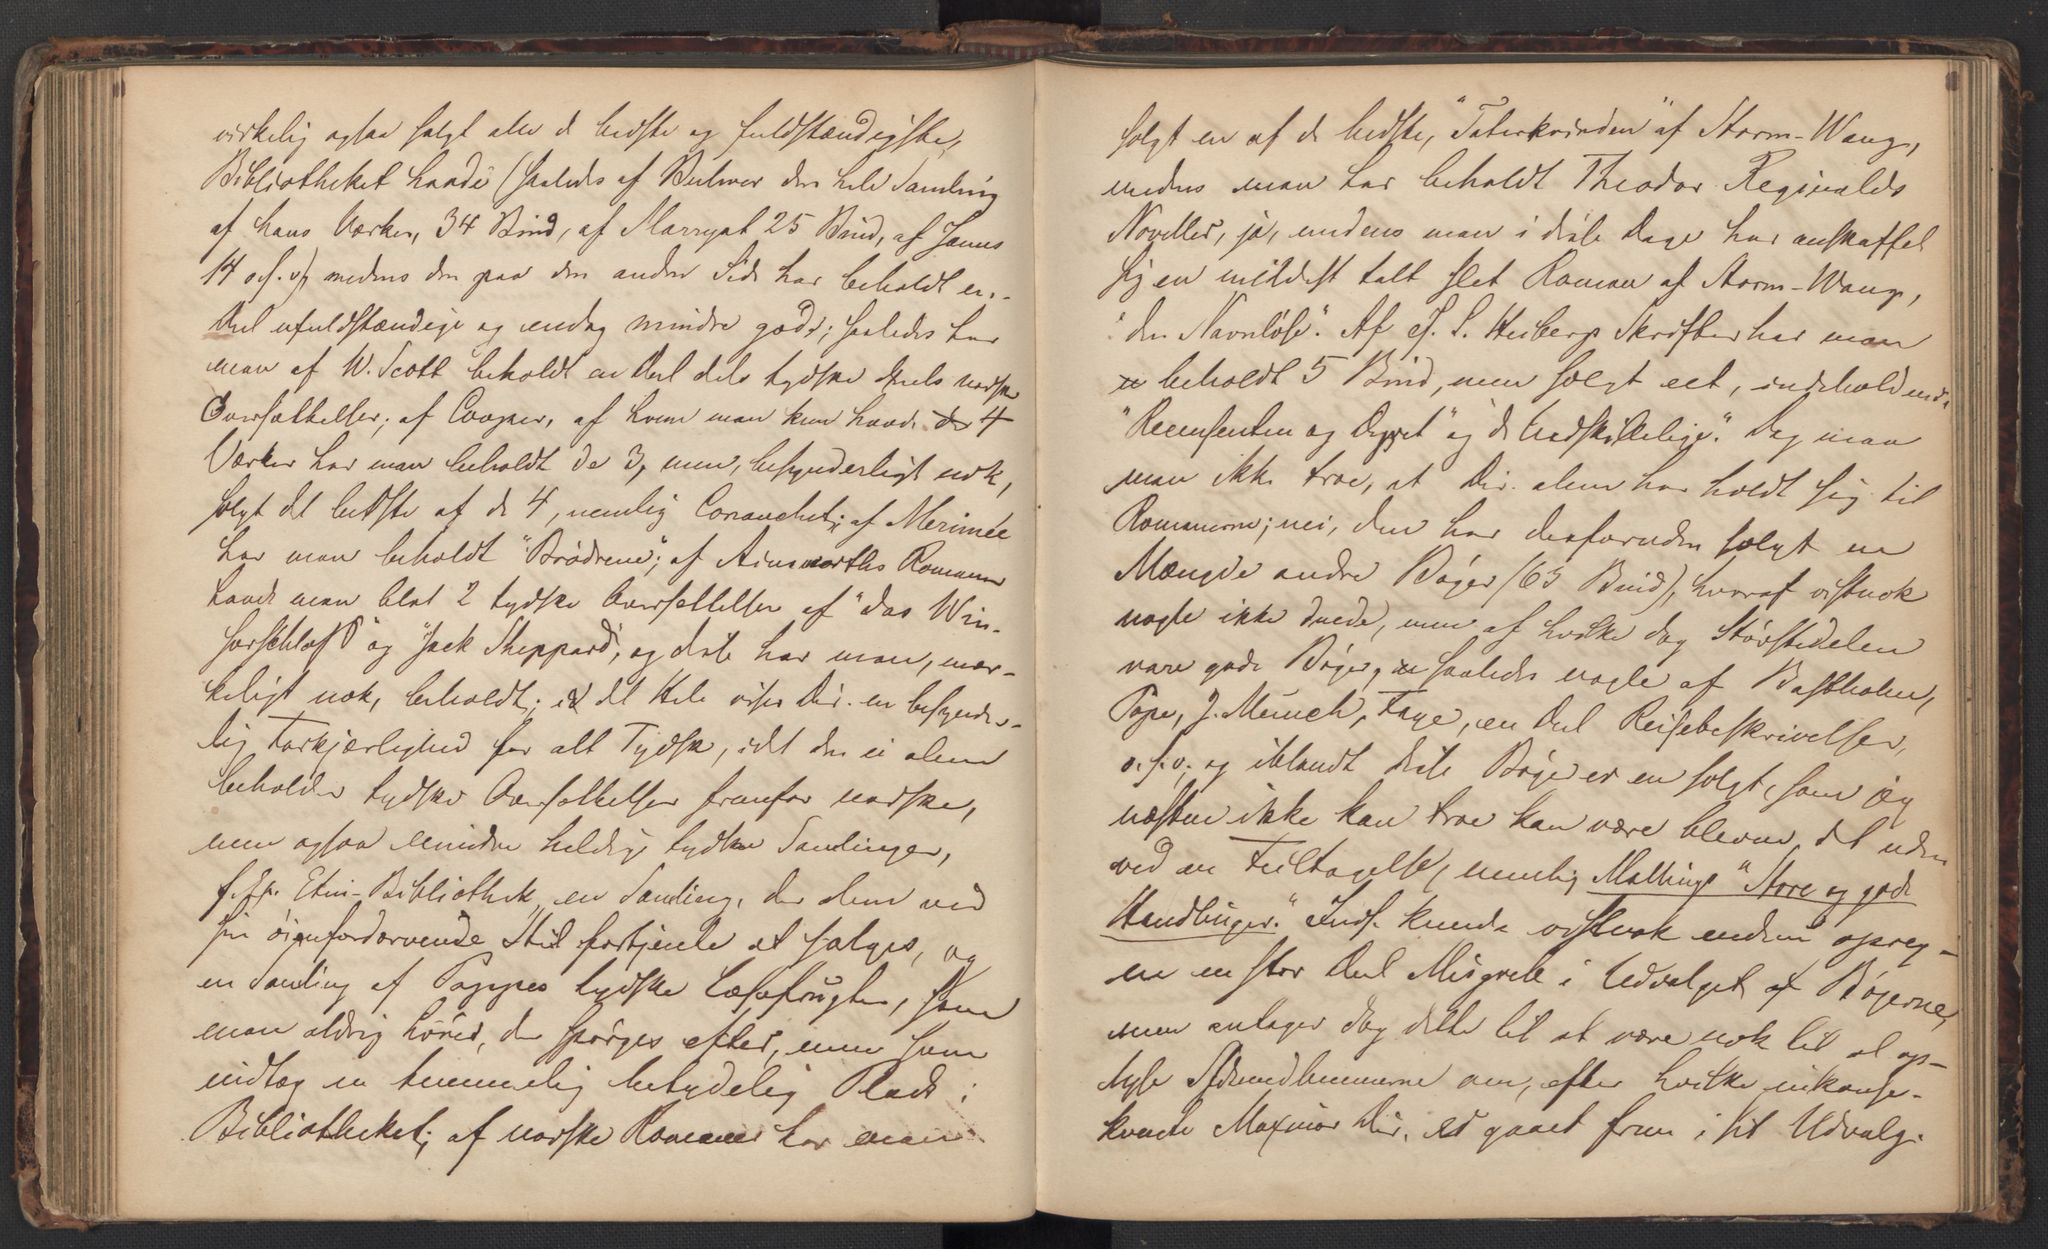 virkelig ogsaa solgt alle de bedste og fuldstændigste,
Bibliotheket havde (saaledes af Bulwer den hele Samling
af hans Værker, 34 Bind, af Marryat 25 Bind, af James
14 o.s.v) medens den paa den anden Side har beholdt en
Deel ufuldstændige og endog mindre gode; saaledes har
man af W. Scott beholdt en Deel dels tydske dels norske
Oversættelser; af Cooper, af hvem man kun havde 4
Værker har man beholdt de 3, men, besynderligt nok,
solgt det bedste af de 4, nemlig Conanchet; af Merimée
har man beholdt "Brødrene"; af Ainsworths Romaner
havde man blot 2 tydske Oversættelser af "das Win-
sorschloss" og "Jack Sheppard", og disse har man, mær-
keligt nok, beholdt; i det Hele viser Dir. en besynder-
lig Forkjærlighed for alt Tydsk, idet den ei alene
beholder tydske Oversættelser fremfor norske,
men ogsaa mindre heldige tydske Samlinger,
f. Ex. Etui-Bibliothek, en Samling, der alene ved
sin øienfordærvende Stiil fortjente at sælges, og
en Samling af Pappes tydske Læsefrugter, som
man aldrig hører, der spørges efter, men som
indtog en temmelig betydelig Plads i
Bibliotheket; af norske Romaner har man
solgt en af de bedste, "Taterkvinden" af Storm-Wang,
medens man har beholdt Theodor Reginalds
Noveller, ja, medens man i disse Dage har anskaffet
sig en mildest talt slet Roman af Storm-Wang,
"den Navnløse". Af J. L. Heibergs Skrifter har man
beholdt 5 Bind, men solgt eet, indeholdende
"Recensenten og Dyret" og "de Uadskillelige". Dog maa
man ikke troe, at Dir. alene har holdt sig til
Romanerne; nei, den har desforuden solgt en
Mængde andre Bøger (63 Bind), hvoraf vistnok
nogle ikke duede, men af hvilke dog Størstedelen
vare gode Bøger, saaledes nogle af Bastholm,
Pope, J. Munch, Faye, en Deel Reisebeskrivelser,
o.s.v; og iblandt disse Bøger er en solgt, som jeg
næsten ikke kan troe kan være bleven det uden
ved en Feiltagelse, nemlig Mallings "Store og gode
Handlinger." Inds. kunde vistnok endnu opreg-
ne en stor Deel Misgreb i Udvalget af Bøgerne,
men antager dog dette til at være nok til at op-
lyse Medlemmerne om, efter hvilke inkonse-
kvente Maximer Dir. er gaaet frem i sit Udvalg.